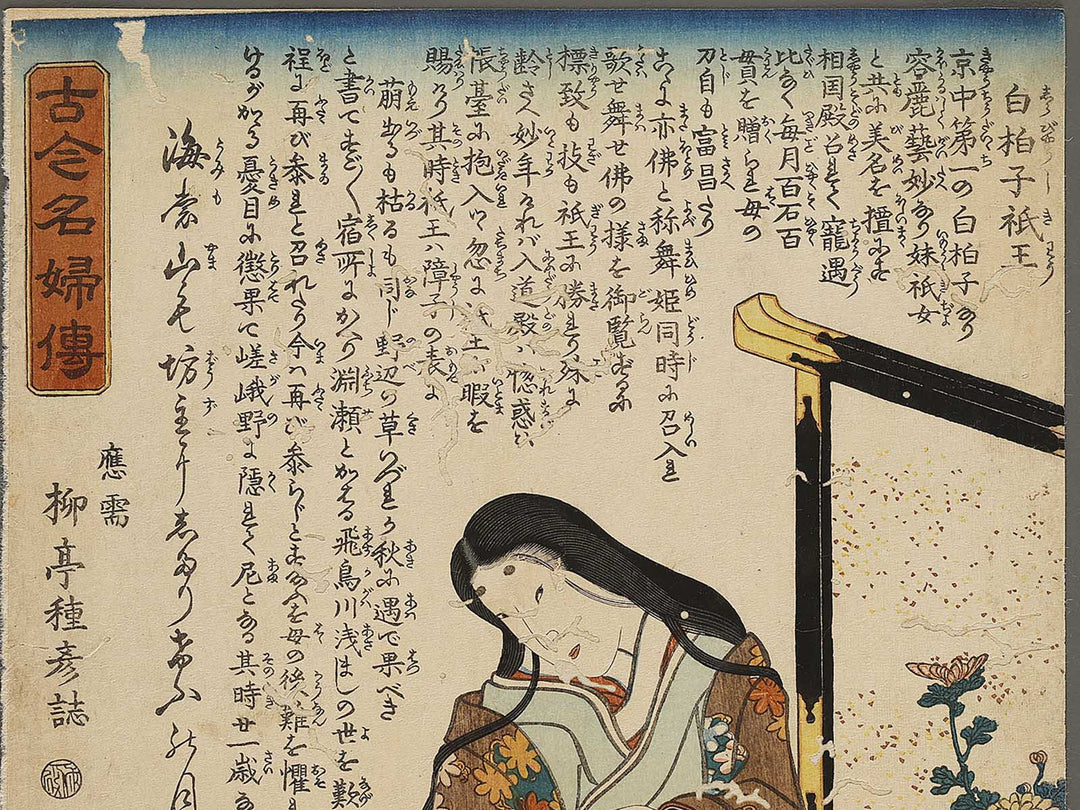 白拍子祇王
京中第一の白拍子なり
容麗藝妙なり妹祇女
と共に美名を擅にす
相国殿召して寵遇
比なく毎月百石百
貫を贈られ母の
刀自も富昌たり
こゝに亦佛と称舞姫同時に召入れ
歌せ舞せ佛の様を御覧ずるに
標致も技も祇王に勝り殊に
齢さへ妙年なれバ入道殿ハ惚惑ひ
張臺に抱入つ忽に祇王ハ暇を
賜ふり其時祇王ハ障子の表に
萠出るも枯るも同じ野辺の草いづれか秋に遇で果べき
と書てすごく宿所にかへり淵瀬とかはる飛鳥川浅ましの世を歎
程に再び参れと召れたり今ハ再び参らじとすなるを母の後難を懼れ
けるがかる憂目に懲果て嵯峨野に隠れて尼となる其時廿一歳
海棠山も坊主
古今名婦傳
應需
柳亭種彦誌